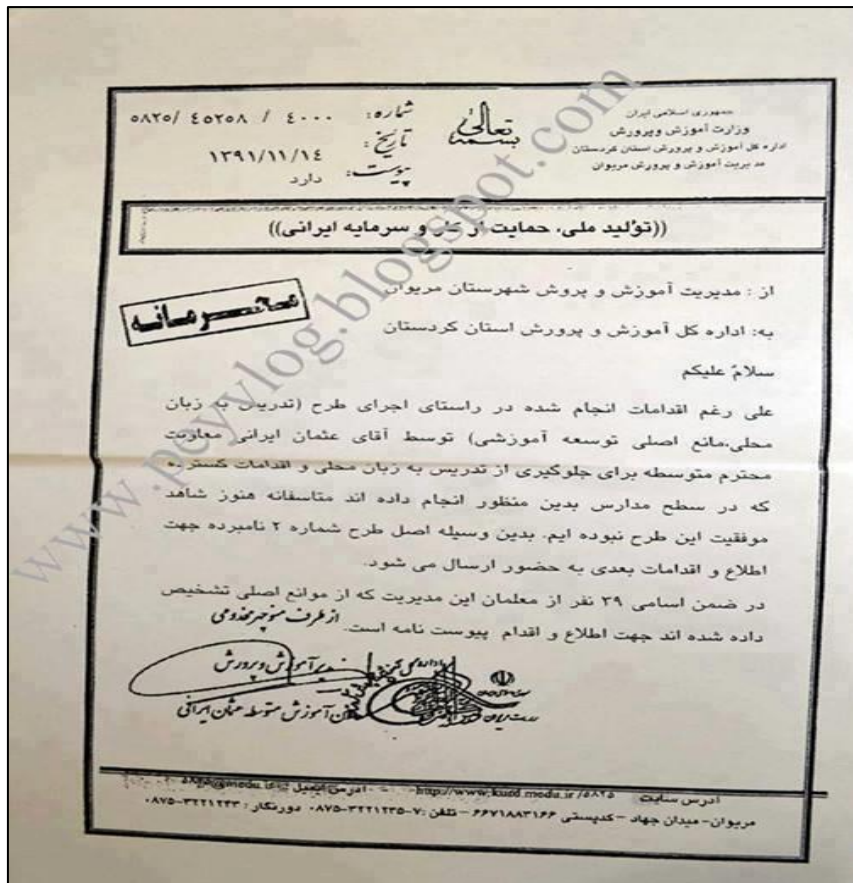 جمهوری اسلامی ایران
وزارت آموزش وپرورش
اداره کل آموزش و پرورش استان کردستان
مدیریت آموزش و پرورش مریوان
بسمه تعالی
شماره: ۴۰۰۰ / ۴۵۲۵۸ /۵۸۲۵
تاریخ: ۱۳۹۱/۱۱/۱۴
پیوست: دارد
((تولید ملی، حمایت از کار و سرمایه ایرانی))
محرمانه
از : مدیریت آموزش و پروش شهرستان مریوان
به: اداره کل آموزش و پرورش استان کردستان
سلامٌ علیکم
علی رغم اقدامات انجام شده در راستای اجرای طرح (تدریس به زبان
محلی،مانع اصلی توسعه آموزشی) توسط آقای عثمان ایرانی معاونت
محترم متوسطه برای جلوگیری از تدریس به زبان محلی و اقدامات گسترده
که در سطح مدارس بدین منظور انجام داده اند متاسفانه هنوز شاهد
موفقیت این طرح نبوده ایم. بدین وسیله اصل طرح شماره ۲ نامبرده جهت
اطلاع و اقدامات بعدی به حضور ارسال می شود.
در ضمن اسامی ۳۹ نفر از معلمان این مدیریت که از موانع اصلی تشخیص
داده شده اند جهت اطلاع و اقدام پیوست نامه است.
از طرف منوچهر مخدومی
مدیر آموزش و پرورش
آموزش متوسطه عثمان ایرانی
آدرس سایت http://www.kurd.medu.ir/۵۸۲۵ - آدرس ایمیل
مریوان- میدان جهاد – کدپستی ۶۶۷۱۸۸۳۱۶۶ – تلفن :۷-۳۲۲۱۲۳۵-۰۸۷۵ دورنگار : ۳۲۲۱۲۴۳-۰۸۷۵
www.peyvlog.blogspot.com